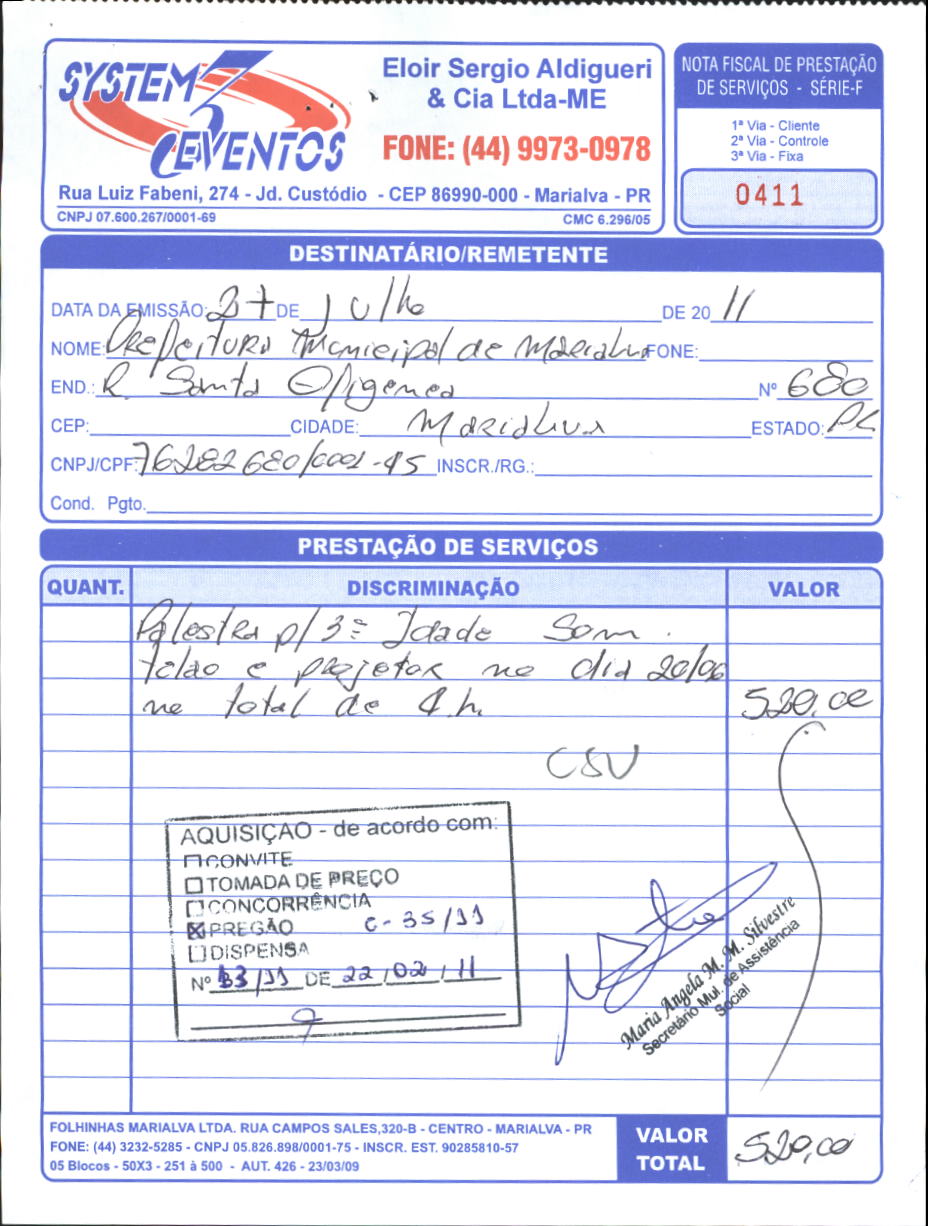 SYSTEM 3 EVENTOS
Eloir Sergio Aldigueri
& Cia Ltda-ME
FONE: (44) 9973-0978
Rua Luiz Fabeni, 274 - Jd. Custódio - CEP 86990-000 - Marialva - PR
CNPJ 07.600.267/0001-69 CMC 6.296/05
NOTA FISCAL DE PRESTAÇÃO
DE SERVIÇOS - SÉRIE-F
1ª Via - Cliente
2ª Via - Controle
3ª Via - Fixa
0411
DESTINATÁRIO/REMETENTE
DATA DA EMISSÃO: 27 DE Julho DE 20 11
NOME: Prefeitura Municipal de Marialva FONE:
END.: R. Santa Efigenea Nº 680
CEP: CIDADE: Marialva ESTADO: PR
CNPJ/CPF: 76282680/0001-45 INSCR./RG.:
Cond. Pgto.
PRESTAÇÃO DE SERVIÇOS
QUANT. DISCRIMINAÇÃO VALOR
Palestra p/ 3ª Idade Som.
telão e projetor no dia 20/06
no total de 4 h. 520,00
CSU
AQUISIÇÃO - de acordo com:
CONVITE
TOMADA DE PREÇO
CONCORRÊNCIA
PREGÃO C-35/11
DISPENSA
Nº 33/11 DE 22/02/11
Maria Angela M. M. Silvestre
Secretário Mul. de Assistência
Social
FOLHINHAS MARIALVA LTDA. RUA CAMPOS SALES,320-B - CENTRO - MARIALVA - PR
FONE: (44) 3232-5285 - CNPJ 05.826.898/0001-75 - INSCR. EST. 90285810-57
05 Blocos - 50X3 - 251 à 500 - AUT. 426 - 23/03/09
VALOR
TOTAL
520,00